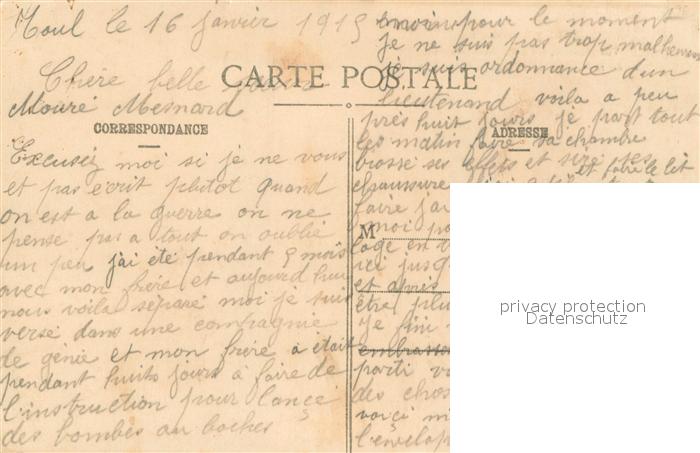 Toul le 16 janvier 1915
Chère belle
Moure Mesnard
CARTE POSTALE
CORRESPONDANCE
Excusez moi si je ne vous
et pas ecrit plutot quand
on est a la guerre on ne
pense pas a tout on oublie
un peu j'ai ete pendant 5 mois
avec mon frère et aujourd hui
nous voila séparé moi je suis
versé dans une compagnie
de génie et mon frère a était
pendant huits jours a faire de
l'instruction pour lance
des bombes au boches
moins pour le moment
je ne suis pas trop malheureux
je suis ordonnance d'un
lieutenand voila a peu
près huit jours je part tout
les matin faire sa chambre
ADRESSE
brosse ses effets et sire ses
et faire le lit
chaussure
faire
M
moi
ici jusq
et après
être plu
Je fini
embrassan
parti
des chos
voiçi
l'envelop
privacy protection
Datenschutz